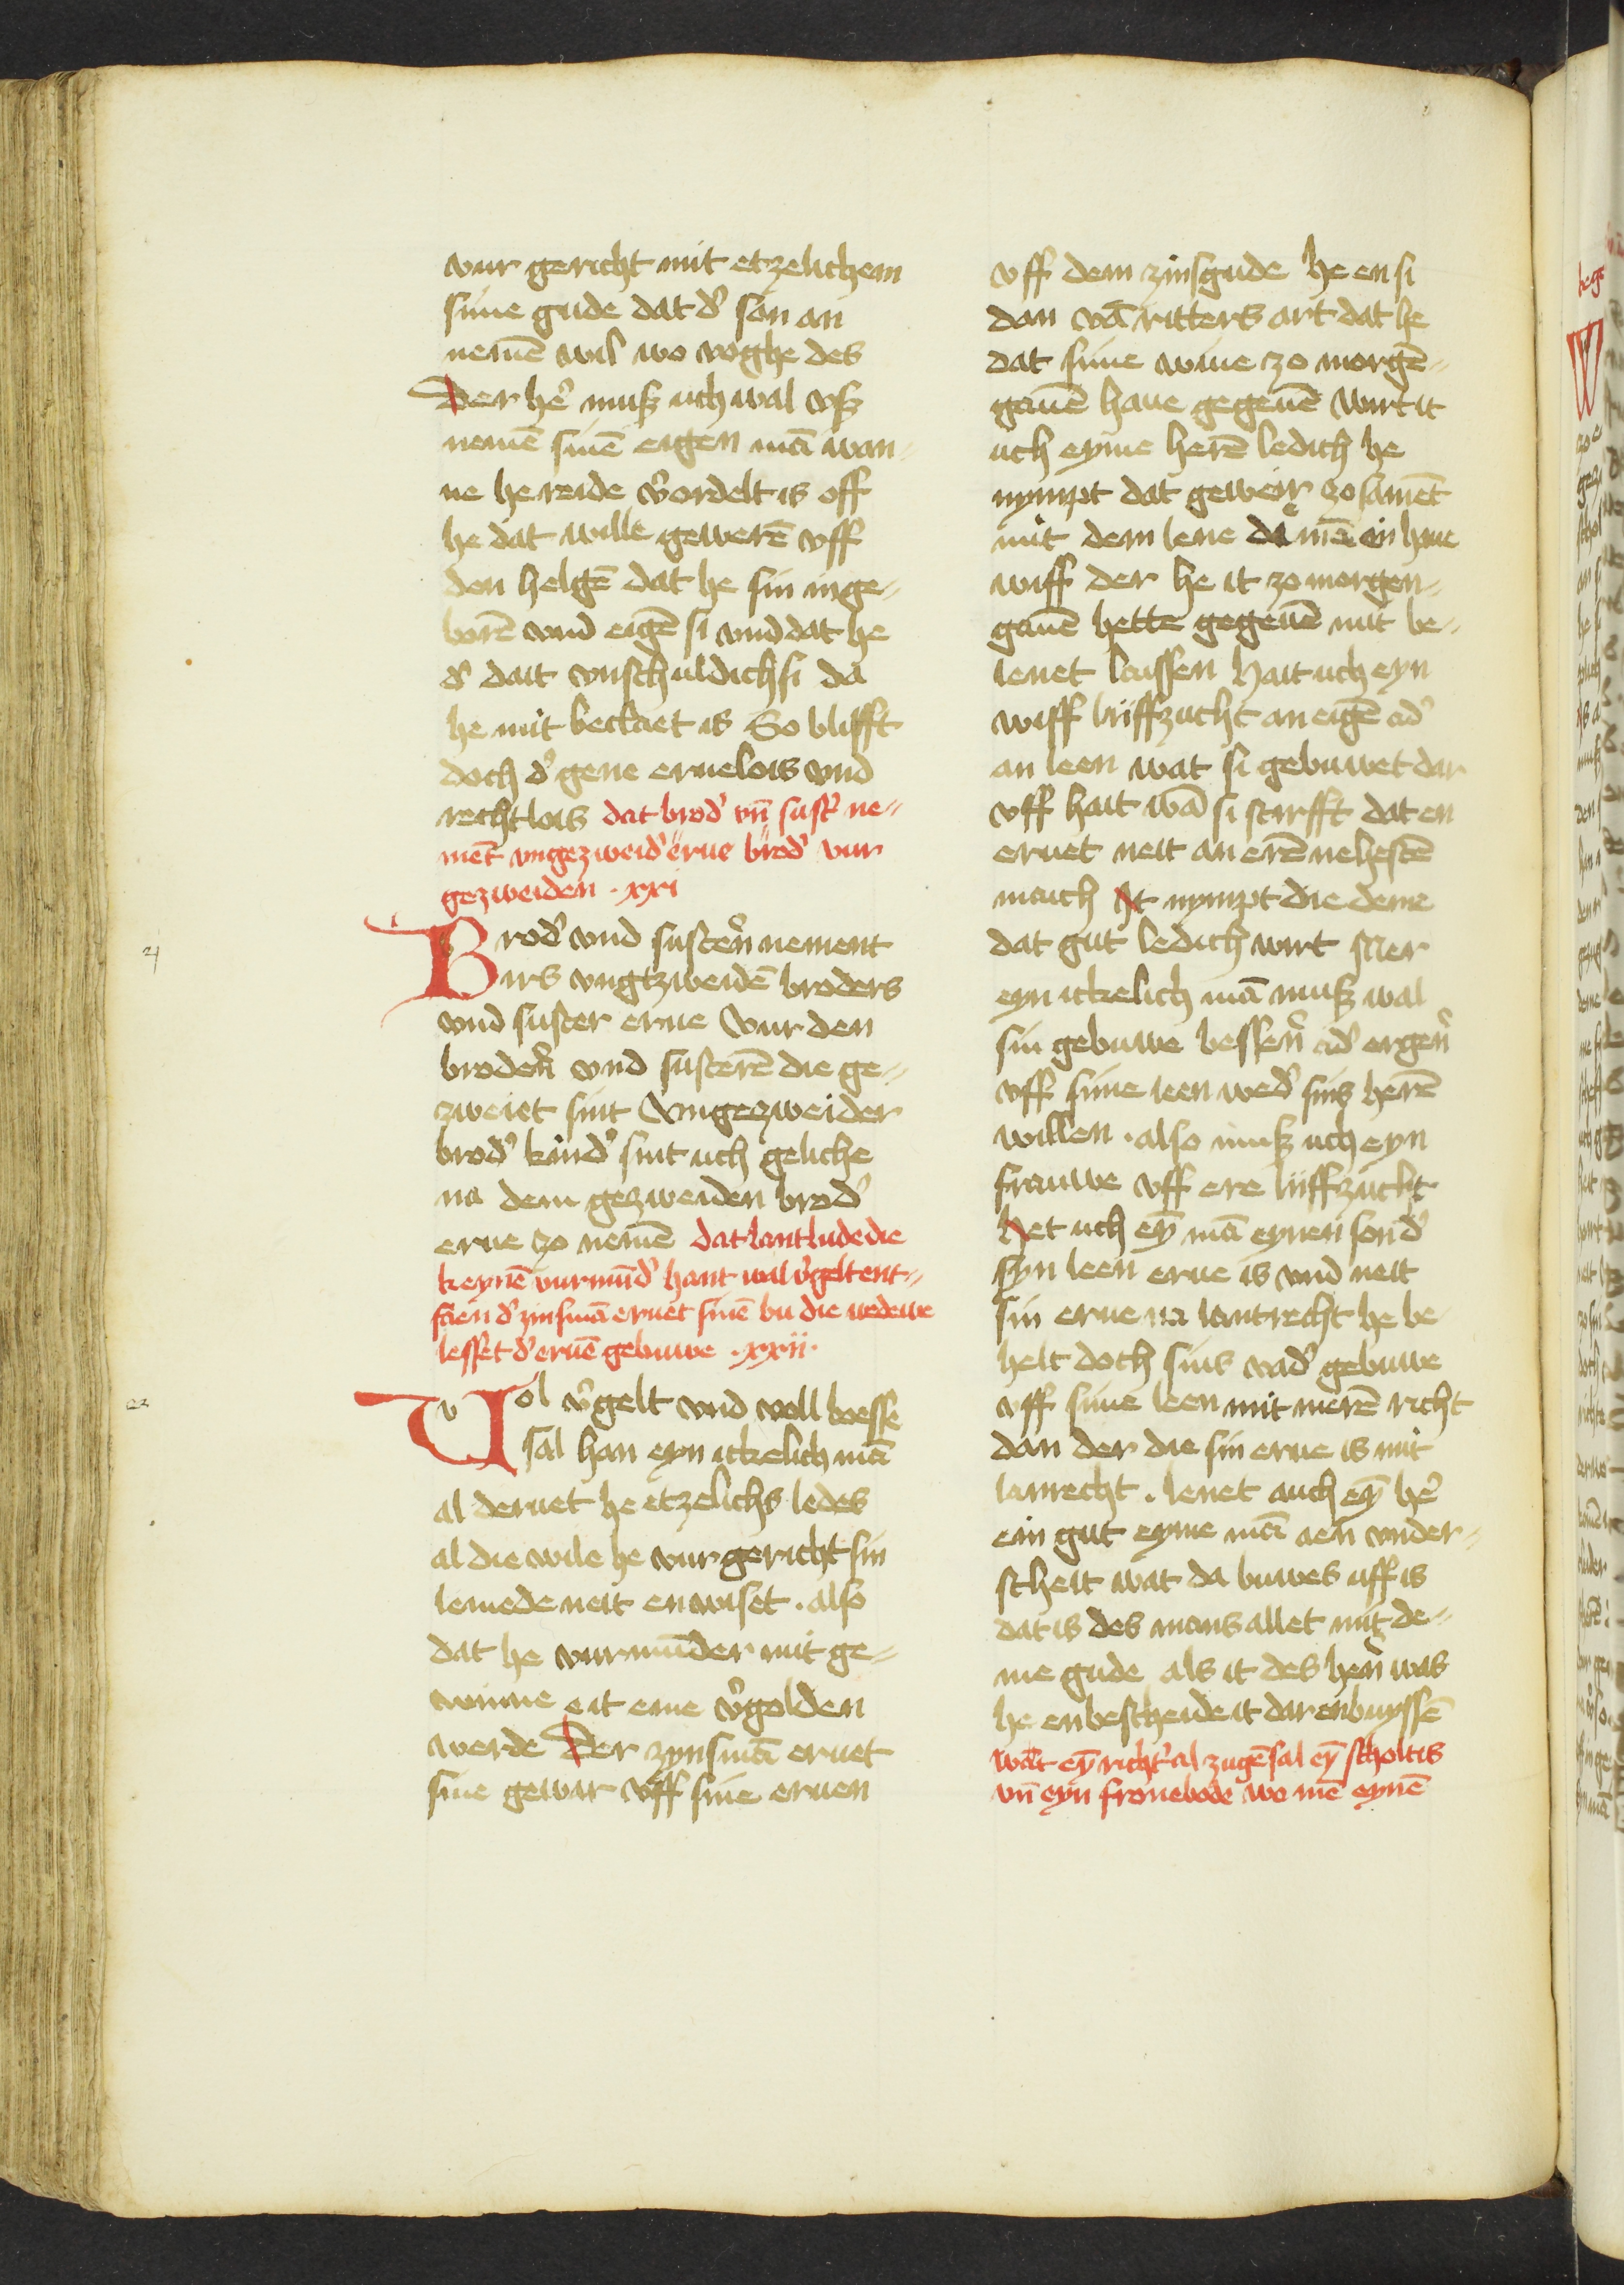 vur gericht mit etzelichem
sime gude dat d' son an
nemē wil wo woghe des
Der hē' musz uch wal vsz
nemē sinē eigen mā wan-
ne he reide v'ordelt is off
he dat wille gewerē vff
den helgē dat he sin inge-
borē vnd eigē si vnd dat he
d' dait vnschuldich si da
he mit beclaet is So blifft
doch d' gene eruelois vnd
rechtlois dat brod' vn̄ sust' ne-
mēt vngezweid' erue brod' vur
gezweiden · xxi
21
Brod' vnd susteren nement
irs vngtzweidē broders
vnd suster erue Vur den
broderen vnd susterē die ge-
zweiet sint Vngezweider
brod' kind' sint uch geliche
na dem gezweiden brod'
erue zo nemē dat lantlude die
keynē vurmūd' hant wal v'gelt ent-
faen d' zinsmā eruet sinē bu die wedewe
lesset d' eruē gebuwe · xxii ·
22
Vol v'gelt vnd voll boesse
sal han eyn itzelich mā
al deruet he etzelichs ledes
al die wile he vur gericht sin
lemede neit en wiset . also
dat he vurmūnder mit ge-
winne eit eme v'golden
werde Der zynsmā eruet
sine gewar vff sine eruen
vff dem zinsgude he en si
dan vā ritters art dat he
dat sime wiue zo morgē-
gauē haue gegeuē wirt it
uch eyme herē ledich he
nympt dat geweir zo samēt
mit dem lene da mē ein haue
wiff der he it zo morgen-
gauē hette gegeuē mit be-
lenet laissen Hait uch eyn
wiff lijffzucht an eigē ad'
an leen wat si gebuwet dar
vff hait wā si stirfft dat en
eruet neit an erē nehestē
mauch It nympt die deme
dat gut ledich wirt Mer
eyn itzelich mā musz wal
sin gebuwe besseren ad' ergeren
vff sime leen wed' sins herē
willen . also musz uch eyn
frauwe vff ere lijffzucht
het uch eȳ mā eynen son d'
syn leen erue is vnd neit
sin erue na lantrecht he be
helt doch sins vad' gebuwe
vff sime leen mit merē richt
dan der die sin erue is mit
lanrecht . lenet auch eȳ hē'
ein gut eyme mā aen vnder-
scheit wat da buwes uff is
dat is des mans allet mit de-
me gude als it des heren was
he en bescheide it dar enbuyssē
wāt eȳ richt' al zugē sal eȳ scholtis
vn̄ eyn fronebode wo mē eynē